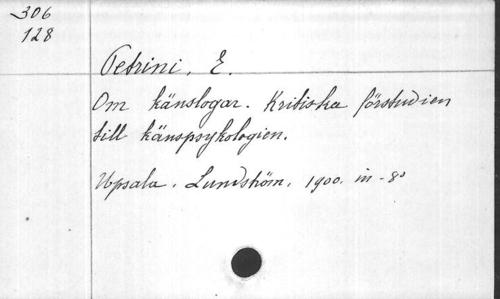 306
128
Petrini, E.
Om känslogar. Kritiska förstudien
till känspsykologien.
Upsala. Lundström. 1900. in-8º